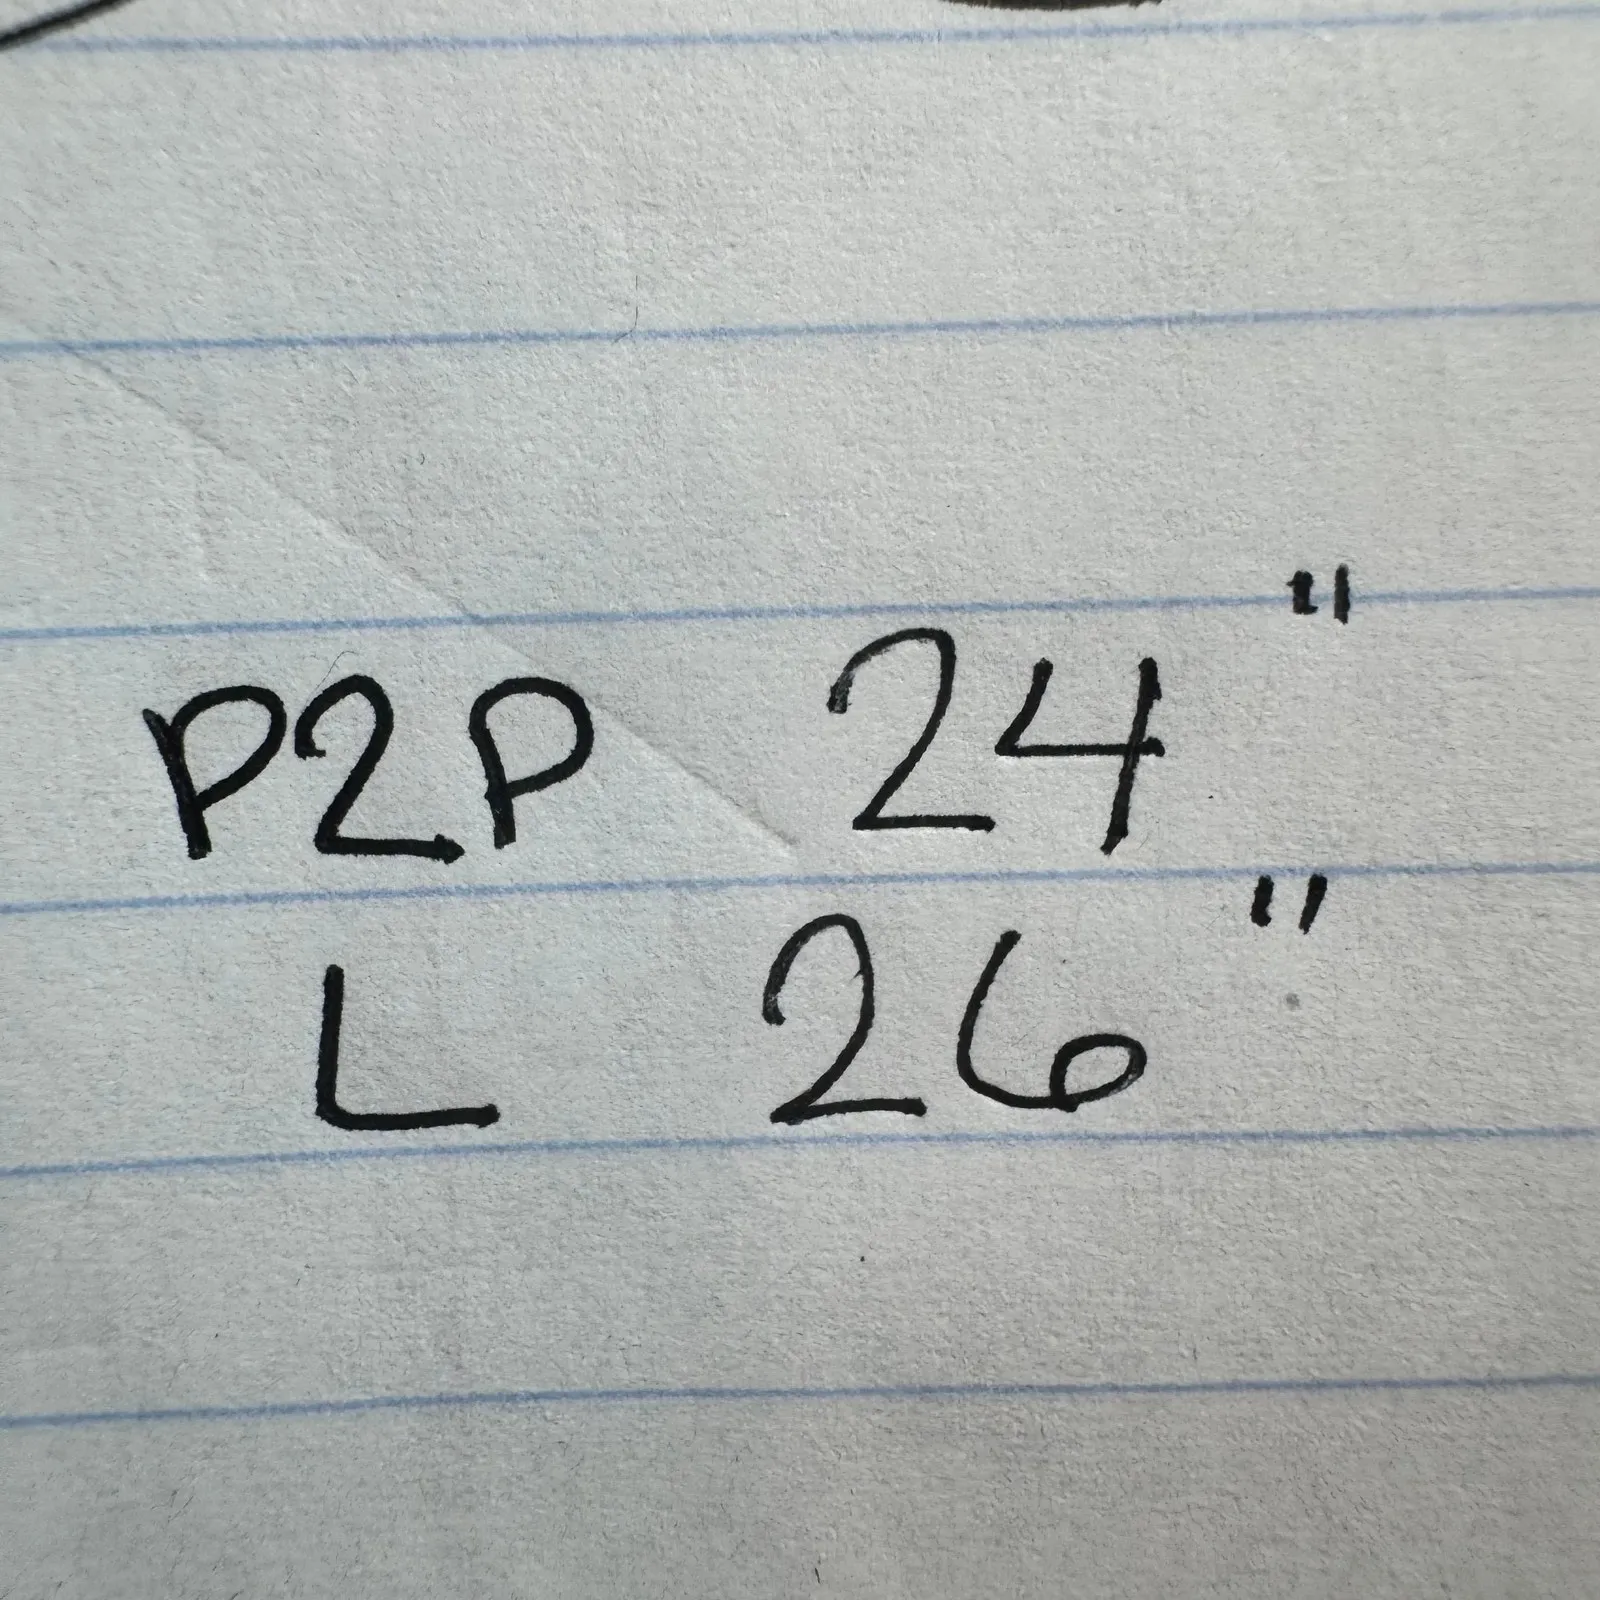 P2P 24"
L 26"